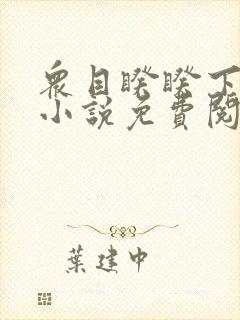 衆目睽睽下
小說免費閱
葉建中